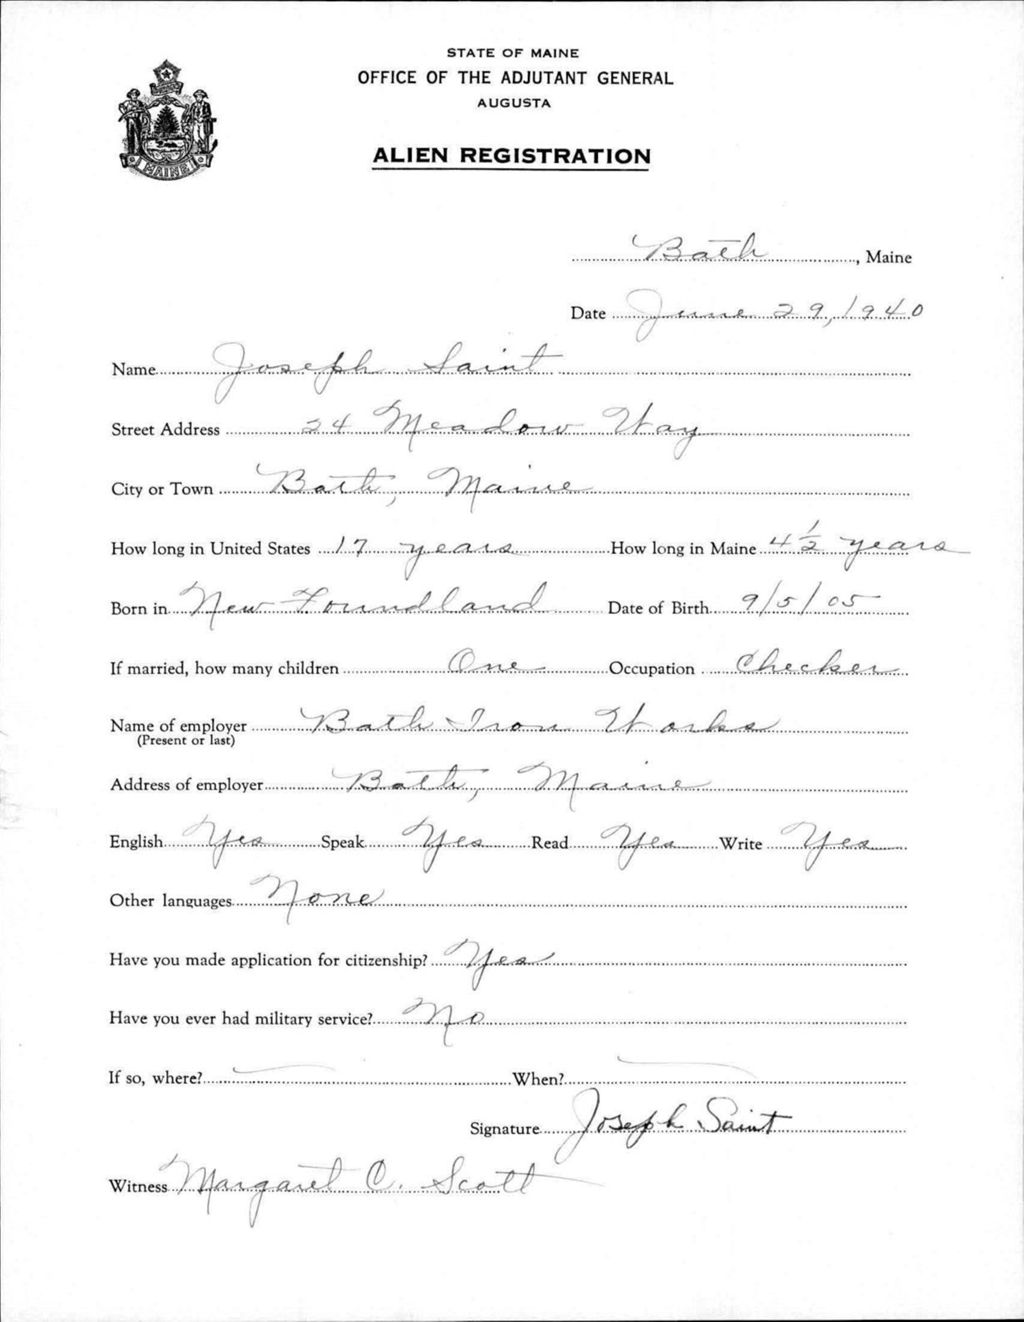 STATE OF MAINE
OFFICE OF THE ADJUTANT GENERAL
AUGUSTA
ALIEN REGISTRATION
MAINE
Bath, Maine
Date June 29, 1940
Name Joseph Saint
Street Address 24 Meadow Way
City or Town Bath, Maine
How long in United States 17 years How long in Maine 4 1/2 years
Born in New Foundland Date of Birth 9/5/05
If married, how many children One Occupation Checker
Name of employer Bath Iron Works
(Present or last)
Address of employer Bath, Maine
English Yes Speak Yes Read Yes Write Yes
Other languages None
Have you made application for citizenship? Yes
Have you ever had military service? No
If so, where? When?
Signature Joseph Saint
Witness Margaret C. Scott